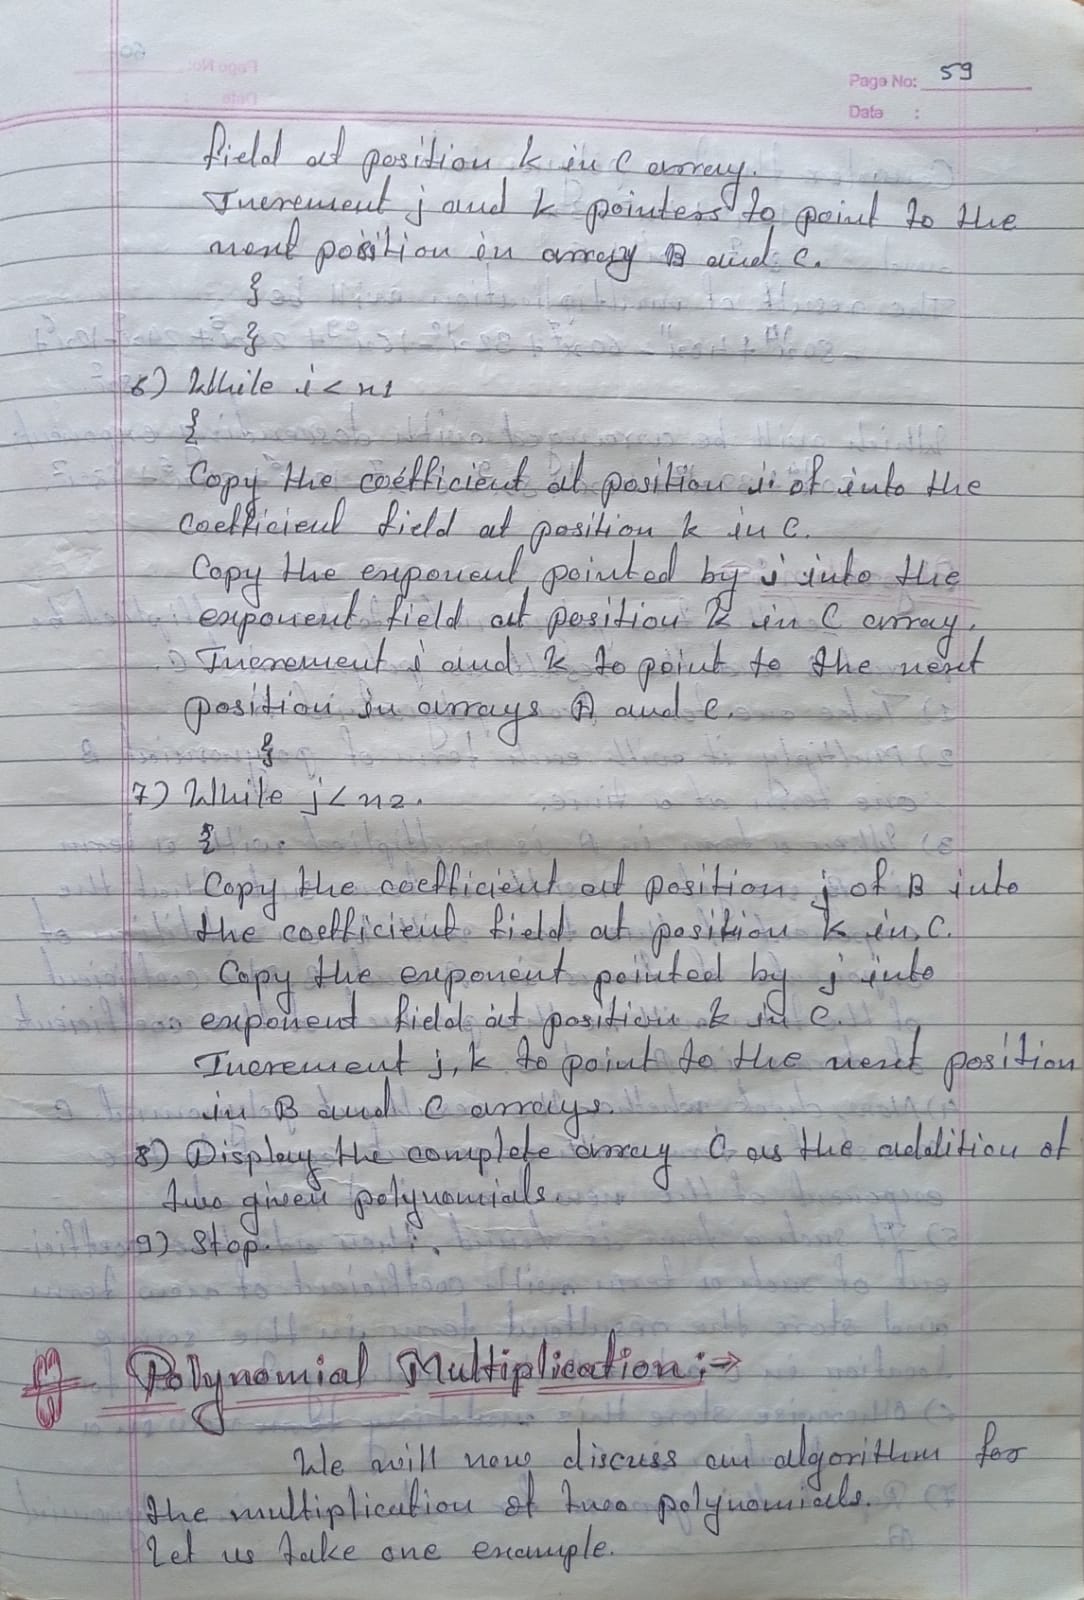 Page No: 59
Date :
field at position k in C array.
Increment j and k pointers to point to the
next position in array B and C.
}
}
6) While i < n1
{
Copy the coefficient at position i of into the
coefficient field at position k in C.
Copy the exponent pointed by i into the
exponent field at position k in C array.
Increment i and k to point to the next
position in arrays A and C.
}
7) While j < n2.
{
Copy the coefficient at position j of B into
the coefficient field at position k in C.
Copy the exponent pointed by j into
exponent field at position k in C.
Increment j, k to point to the next position
in B and C arrays.
8) Display the complete array C as the addition of
two given polynomials.
9) Stop.
Polynomial Multiplication :→
We will now discuss an algorithm for
the multiplication of two polynomials.
Let us take one example.